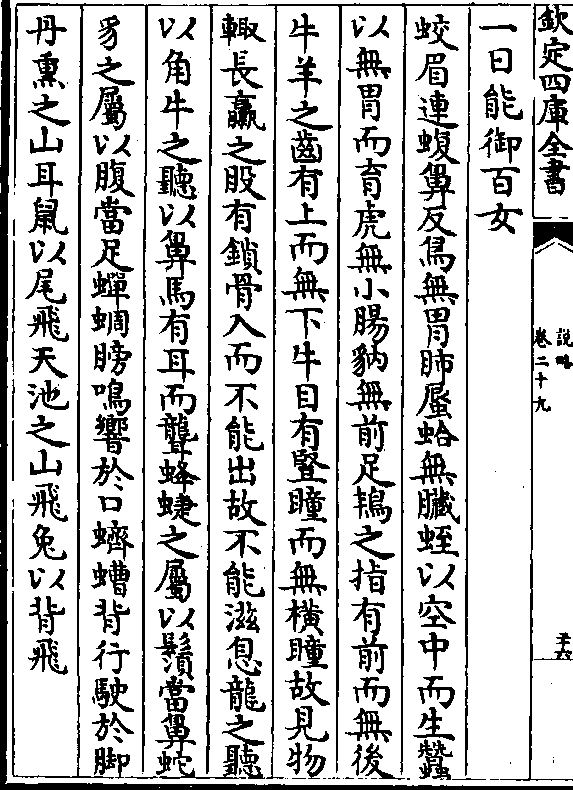 欽定四庫全書
說略
卷二十九
一日能御百女
蛟眉連蝮鼻反鳥無胃肺蜃蛤無臟蛭以空中而生蠶
以無胃而育虎無小腸豽無前足鴇之指有前而無後
牛羊之齒有上而無下牛目有豎瞳而無橫瞳故見物
輙長驘之股有鎖骨入而不能出故不能滋息龍之聽
以角牛之聽以鼻馬有耳而聾蜂蜨之屬以鬚當鼻蛇
豸之屬以腹當足蟬蜩膀鳴響於口蠐螬背行駛於脚
丹熏之山耳鼠以尾飛天池之山飛兔以背飛